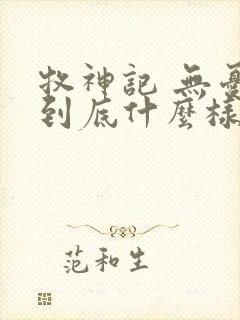 牧神記 無憂
到底什麼樣
范和生